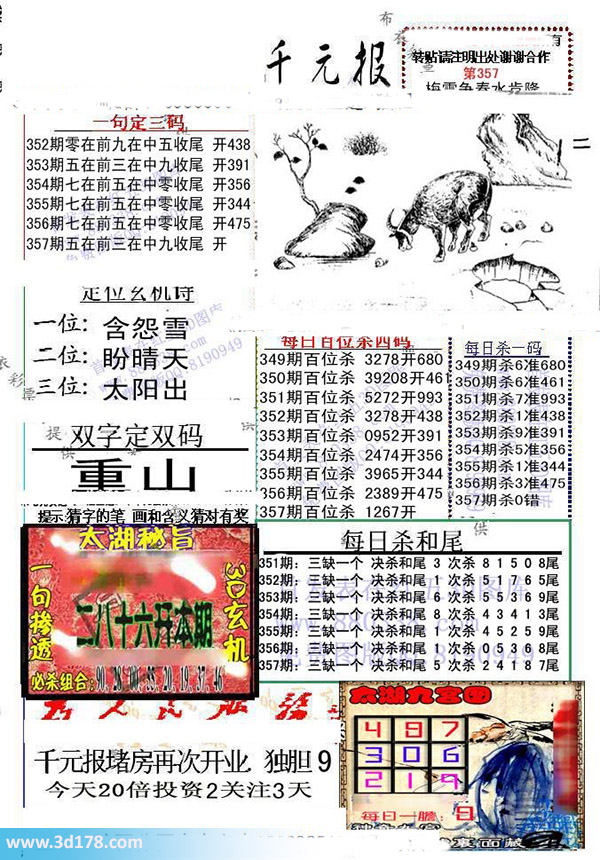 千元报
转贴请注明出处谢谢合作
第357
梅雪争春水肯降
一句定三码
352期零在前九在中五收尾 开438
353期五在前三在中九收尾 开391
354期七在前五在中零收尾 开356
355期七在前五在中零收尾 开344
356期七在前五在中零收尾 开475
357期五在前三在中九收尾 开
二
定位玄机诗
一位: 含怨雪
二位: 盼晴天
三位: 太阳出
双字定双码
重山
提示:猜字的笔 画和含义猜对有奖
每日百位杀四码
349期百位杀 3278开680
350期百位杀 39208开461
351期百位杀 5272开993
352期百位杀 3278开438
353期百位杀 0952开391
354期百位杀 2474开356
355期百位杀 3965开344
356期百位杀 2389开475
357期百位杀 1267开
每日杀一码
349期杀6准680
350期杀6准461
351期杀7准993
352期杀1准438
353期杀9准391
354期杀5准356
355期杀1准344
356期杀3准475
357期杀0错
太湖秘旨
一句掺透
3D玄机
二八十六开本期
必杀组合:90.28.00.33.20.19.37.46
每日杀和尾
351期: 三缺一个 决杀和尾 3 次杀 8 1 5 0 8尾
352期: 三缺一个 决杀和尾 1 次杀 5 1 7 6 5尾
353期: 三缺一个 决杀和尾 6 次杀 5 5 3 6 9尾
354期: 三缺一个 决杀和尾 8 次杀 4 3 4 1 3尾
355期: 三缺一个 决杀和尾 1 次杀 4 5 2 5 9尾
356期: 三缺一个 决杀和尾 1 次杀 0 5 3 6 8尾
357期: 三缺一个 决杀和尾 5 次杀 2 4 1 8 7尾
千元报堵房再次开业 独胆 9
今天20倍投资2关注3天
太湖九宫图
4 8 7
3 0 6
2 1 9
每日一胆: 9
www.3d178.com